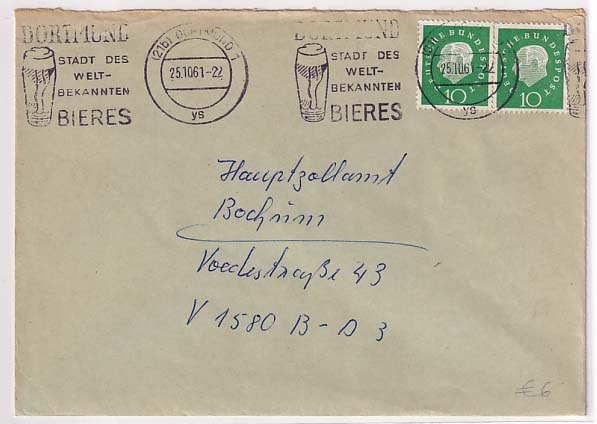 DORTMUND
STADT DES
WELT-
BEKANNTEN
BIERES
(21b) DORTMUND 1
25.10.61-22
ys
STADT DES
WELT-
BEKANNTEN
BIERES
25.10.61-22
ys
DEUTSCHE BUNDESPOST
10
DEUTSCHE BUNDESPOST
10
Hauptzollamt
Bochum
Voedestraße 43
V 1580 B-D 3
€6